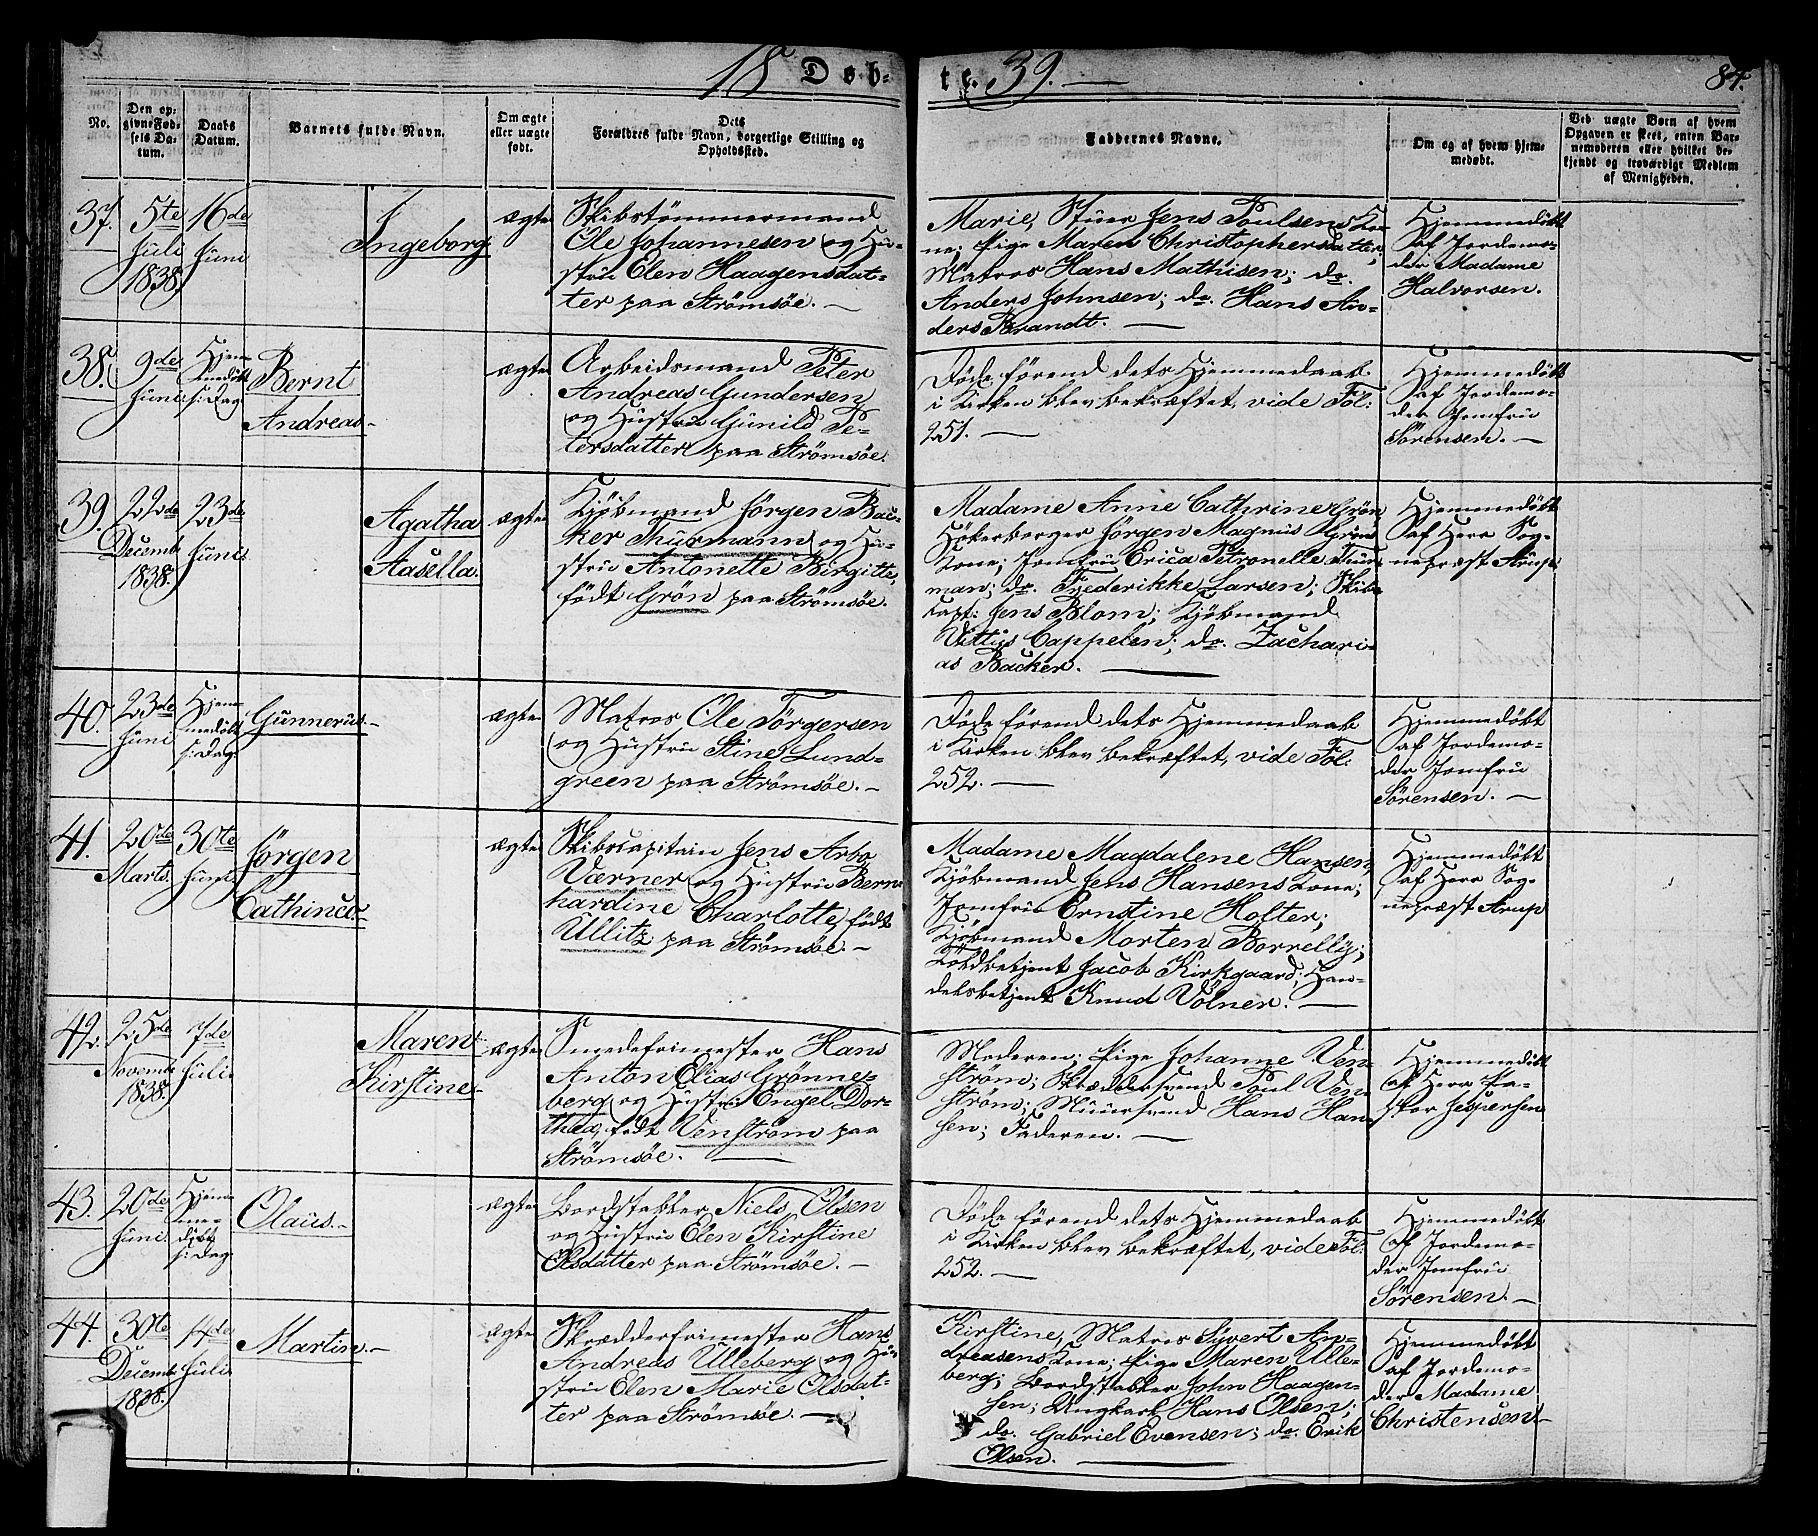 18 Døb-
te. 39.
84.
No.
Den op-
givne Fød-
sels Da-
tum.
Daabs
Datum.
Barnets fulde Navn.
Om ægte
eller uægte
født.
Dets
Forældres fulde Navn, borgerlige Stilling og
Opholdssted.
Faddernes Navne.
Om og af hvem hjem-
medøbt.
Ved uægte Børn af hvem
Opgaven er skeet, enten Bar-
nemoderen eller hvilket be-
kjendt og troværdigt Medlem
af Menigheden.
37.
5te
Juli
1838.
16de
Juni
Ingeborg
ægte
Skibstømmermand
Ole Johannesen og Hu-
stru Elen Haagensdat-
ter paa Strømsøe. —
Marie, Stuer Jens Poulsens Ko-
ne; Pige Maren Christophersdatter;
Matros Hans Mathisen; do.
Anders Johnsen; do. Hans An-
ders Brandt. —
Hjemmedøbt
af Jordemo-
der Madame
Halvorsen.
38.
9de
Juni
Hjem-
medøbt
s: Dag.
Bernt
Andreas-
ægte
Arbeidsmand Peter
Andreas Gundersen
og Hustru Gunild Pe-
tersdatter paa Strømsøe.
Døde førend dets Hjemmedaab
i Kirken blev bekræftet, vide Fol:
251. —
Hjemmedøbt
af Jordemo-
der Jomfru
Sørensen. —
39.
22de
Decemb.
1838.
23de
Juni.
Agatha
Aasella.
ægte
Kjøbmand Jørgen Bac-
ker Thurmann og Hu-
stru Antonette Birgitte,
født Grøn paa Strømsøe.
Madame Anne Cathrine Grøn,
Høkerborger Jørgen Magnus Grøns
Kone; Jomfru Erica Petronelle Thur-
man; do. Frederikke Larsen; Skibs-
capt: Jens Blom; Kjøbmand
Cappelen; do. Zachari-
as Backer. —
Hjemmedøbt
af Herr Sog-
nepræst Arup
40.
23de
Juni
Hjem-
medøbt
s: Dag.
Gunnerus.-
ægte
Matros Ole Torgersen
og Hustru Stine Lund-
green paa Strømsøe. —
Døde førend dets Hjemmedaab
i Kirken blev bekræftet, vide Fol:
252. —
Hjemmedøbt
af Jordemo-
der Jomfru
Sørensen. —
41.
20de
Marts
30te
Juni
Jørgen
Cathinco.
ægte
Skibscapitain Jens Arbo
Værner og Hustru Bern-
hardine Charlotte, født
Ullitz paa Strømsøe. —
Madame Magdalene Hansen,
Kjøbmand Jens Hansens Kone;
Jomfru Ernstine Holter;
Kjøbmand Morten Borrelly;
Jacob Kirkgaard; Han-
delsbetjent Knud Volner. —
Hjemmedøbt
af Herr Sog-
nepræst Arup
42.
25de
Novemb.
1838.
7de
Juli.
Maren
Kirstine-
ægte
Smedefrimester Hans
Anton Elias Grønne-
berg og Hustru Engel Dor-
thea, født Venstrøm paa
Strømsøe. —
Moderen; Pige Johanne Ven-
strøm; Skræddersvend Poul Ven-
strøm; Muursvend Hans Han-
sen; Faderen. —
Hjemmedøbt
af Herr Pa-
stor Jespersen
43.
20de
Juni
Hjem-
me-
døbt
s: Dag.
Olaus.-
ægte
Bordstabler Niels Olsen
og Hustru Elen Kirstine
Olsdatter paa Strømsøe. —
Døde førend dets Hjemmedaab
i Kirken blev bekræftet, vide Fol:
252. —
Hjemmedøbt
af Jordemo-
der Jomfru
Sørensen. —
44.
30te
Decemb.
1838.
14de
Juli.
Martin.-
ægte
Skrædderfrimester Hans
Andreas Ulleberg og Hu-
stru Elen Marie Olsdat-
ter paa Strømsøe. —
Kirstine, Matros Syvert An-
dreasens Kone; Pige Maren Ulle-
berg; Bordstabler John Haagen-
sen; Ungkarl Hans Olsen;
do. Gabriel Evensen; do. Erik
Olsen. —
Hjemmedøbt
af Jordemo-
der Madame
Christensen-